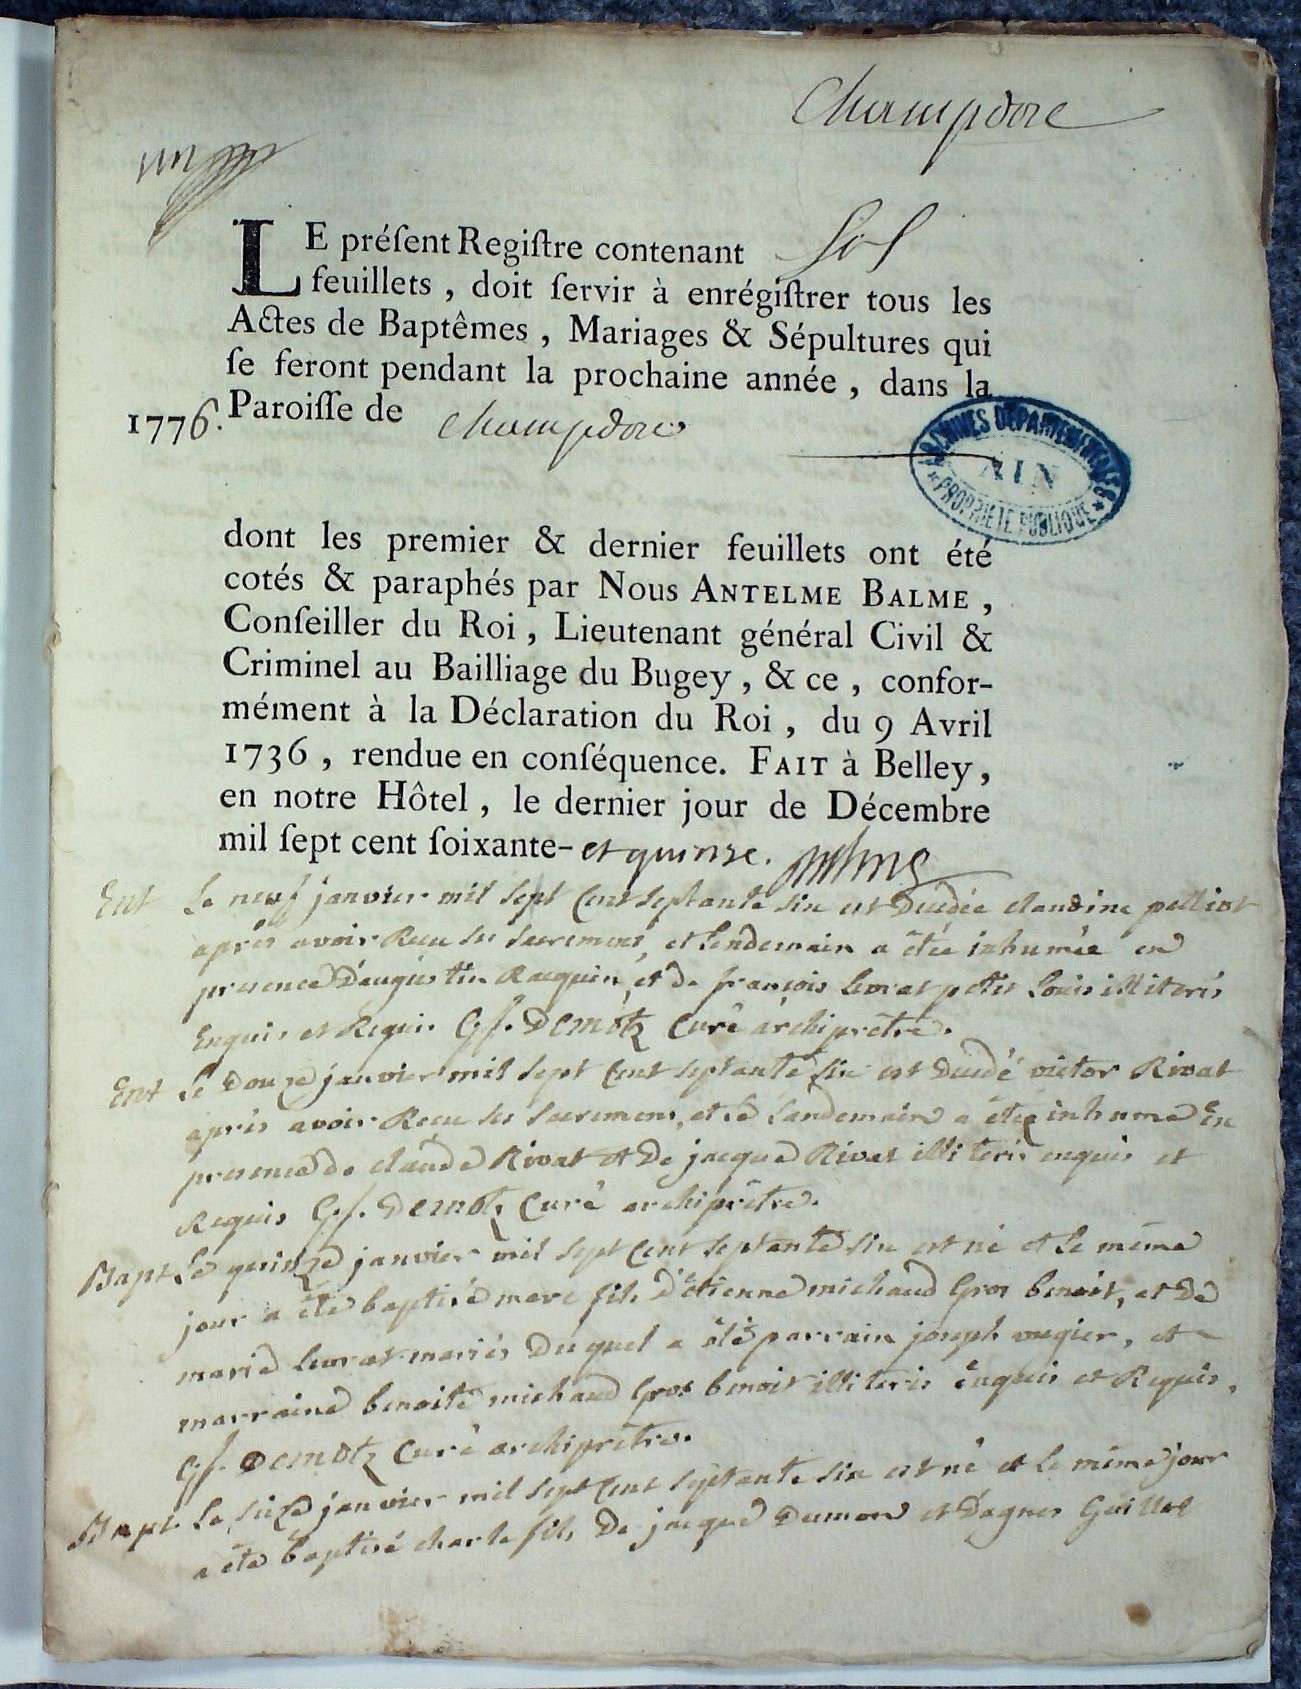 Champdore
un
LE préſent Regiſtre contenant
feuillets, doit ſervir à enrégiſtrer tous les
Actes de Baptêmes, Mariages & Sépultures qui
ſe feront pendant la prochaine année, dans la
1776. Paroiſſe de Champdore
ARCHIVES DEPARTEMENTALES
AIN
* PROPRIETE PUBLIQUE *
dont les premier & dernier feuillets ont été
cotés & paraphés par Nous ANTELME BALME,
Conſeiller du Roi, Lieutenant général Civil &
Criminel au Bailliage du Bugey, & ce, confor-
mément à la Déclaration du Roi, du 9 Avril
1736, rendue en conſéquence. FAIT à Belley,
en notre Hôtel, le dernier jour de Décembre
mil ſept cent ſoixante- et quinze.
Ent Le neuf janvier mil sept Cent septante six est Decedée claudine pelliot
après avoir Reçu ses sacremens, et lendemain a êtée inhumée en
presence D'augustin Racquin, et de françois levrat petit Louis illiteris
Enquis et Requis. Gf. Demotz Curê archiprêtre.
Ent Le Douze janvier mil sept Cent septante six est Decedé victor Rivat
après avoir Recu ses sacremens, et le Landemain a êtée inhumé En
presence de claude Rivat et De jacque Rivat illiteris enquis et
Requis Gf. Demotz Curê archiprêtre.
Bapt Le quinze janvier mil sept Cent septante six est né et le même
jour a êtê baptisé marc fils D'etienne michaud Gros benoit, et De
marie levrat mariés Duquel a êtê parrain joseph augier, et
marraine benoite michaud Gros benoit illiteris ênquis et Requis,
Gf. Demotz Curê archiprêtre.
Bapt Le seize janvier mil sept Cent septante six est nê et le même jour
a êtê baptisé charle fils De jacque Dumon et D'agnes Guillot